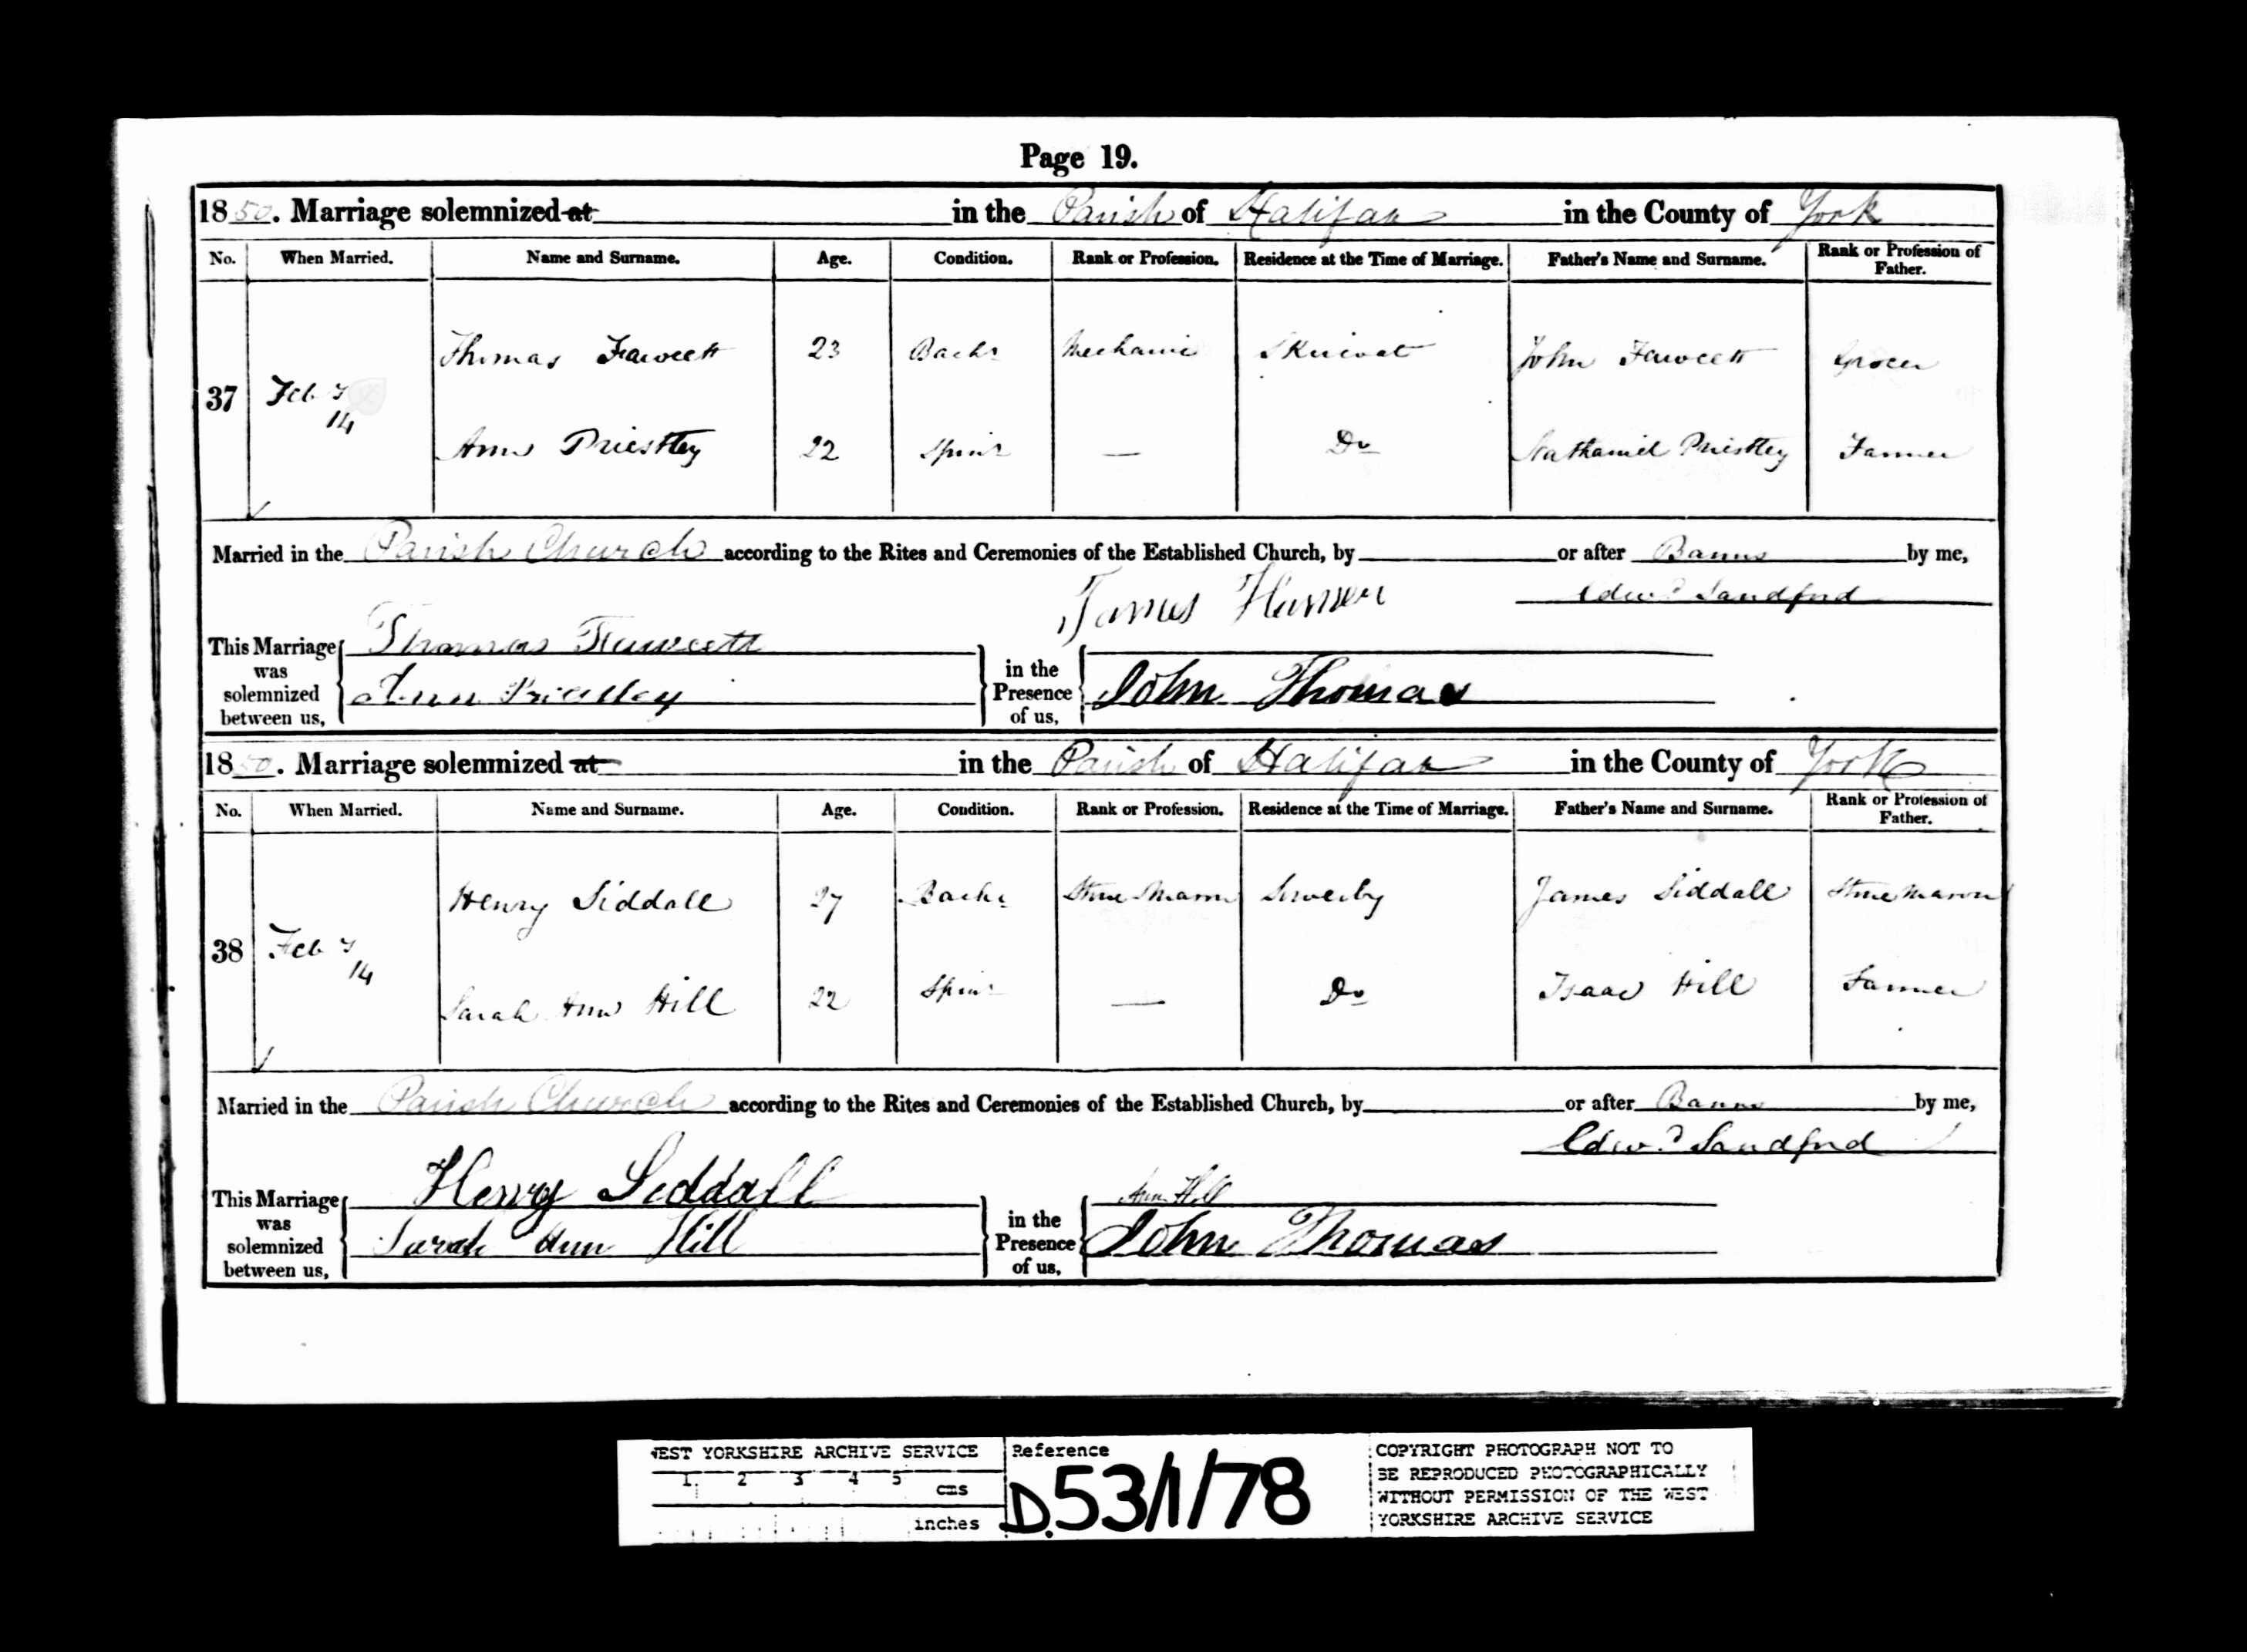 Page 19.
1850. Marriage solemnized at in the Parish of Halifax in the County of York
No. When Married. Name and Surname. Age. Condition. Rank or Profession. Residence at the Time of Marriage. Father's Name and Surname. Rank or Profession of Father.
Thomas Fawcett 23 Bachr Mechanic Skircoat John Fawcett Grocer
37 Feby
14
Ann Priestley 22 Spinr — Do Nathaniel Priestley Farmer
Married in the Parish Church according to the Rites and Ceremonies of the Established Church, by or after Banns by me,
Edwd Sandford
James
This Marriage was solemnized between us, Thomas Fawcett
Ann Priestley
in the Presence of us, John Thomas
1850. Marriage solemnized at in the Parish of Halifax in the County of York
No. When Married. Name and Surname. Age. Condition. Rank or Profession. Residence at the Time of Marriage. Father's Name and Surname. Rank or Profession of Father.
Henry Siddall 27 Bachr Stone Mason Sowerby James Siddall Stone Mason
38 Feby
14
Sarah Ann Hill 22 Spinr — Do Isaac Hill Farmer
Married in the Parish Church according to the Rites and Ceremonies of the Established Church, by or after Banns by me,
Edwd Sandford
This Marriage was solemnized between us, Henry Siddall
Sarah Ann Hill
in the Presence of us, Ann Hill
John Thomas
WEST YORKSHIRE ARCHIVE SERVICE
1 2 3 4 5
cms
inches
Reference
D.53/1/78
COPYRIGHT PHOTOGRAPH NOT TO
BE REPRODUCED PHOTOGRAPHICALLY
WITHOUT PERMISSION OF THE WEST
YORKSHIRE ARCHIVE SERVICE